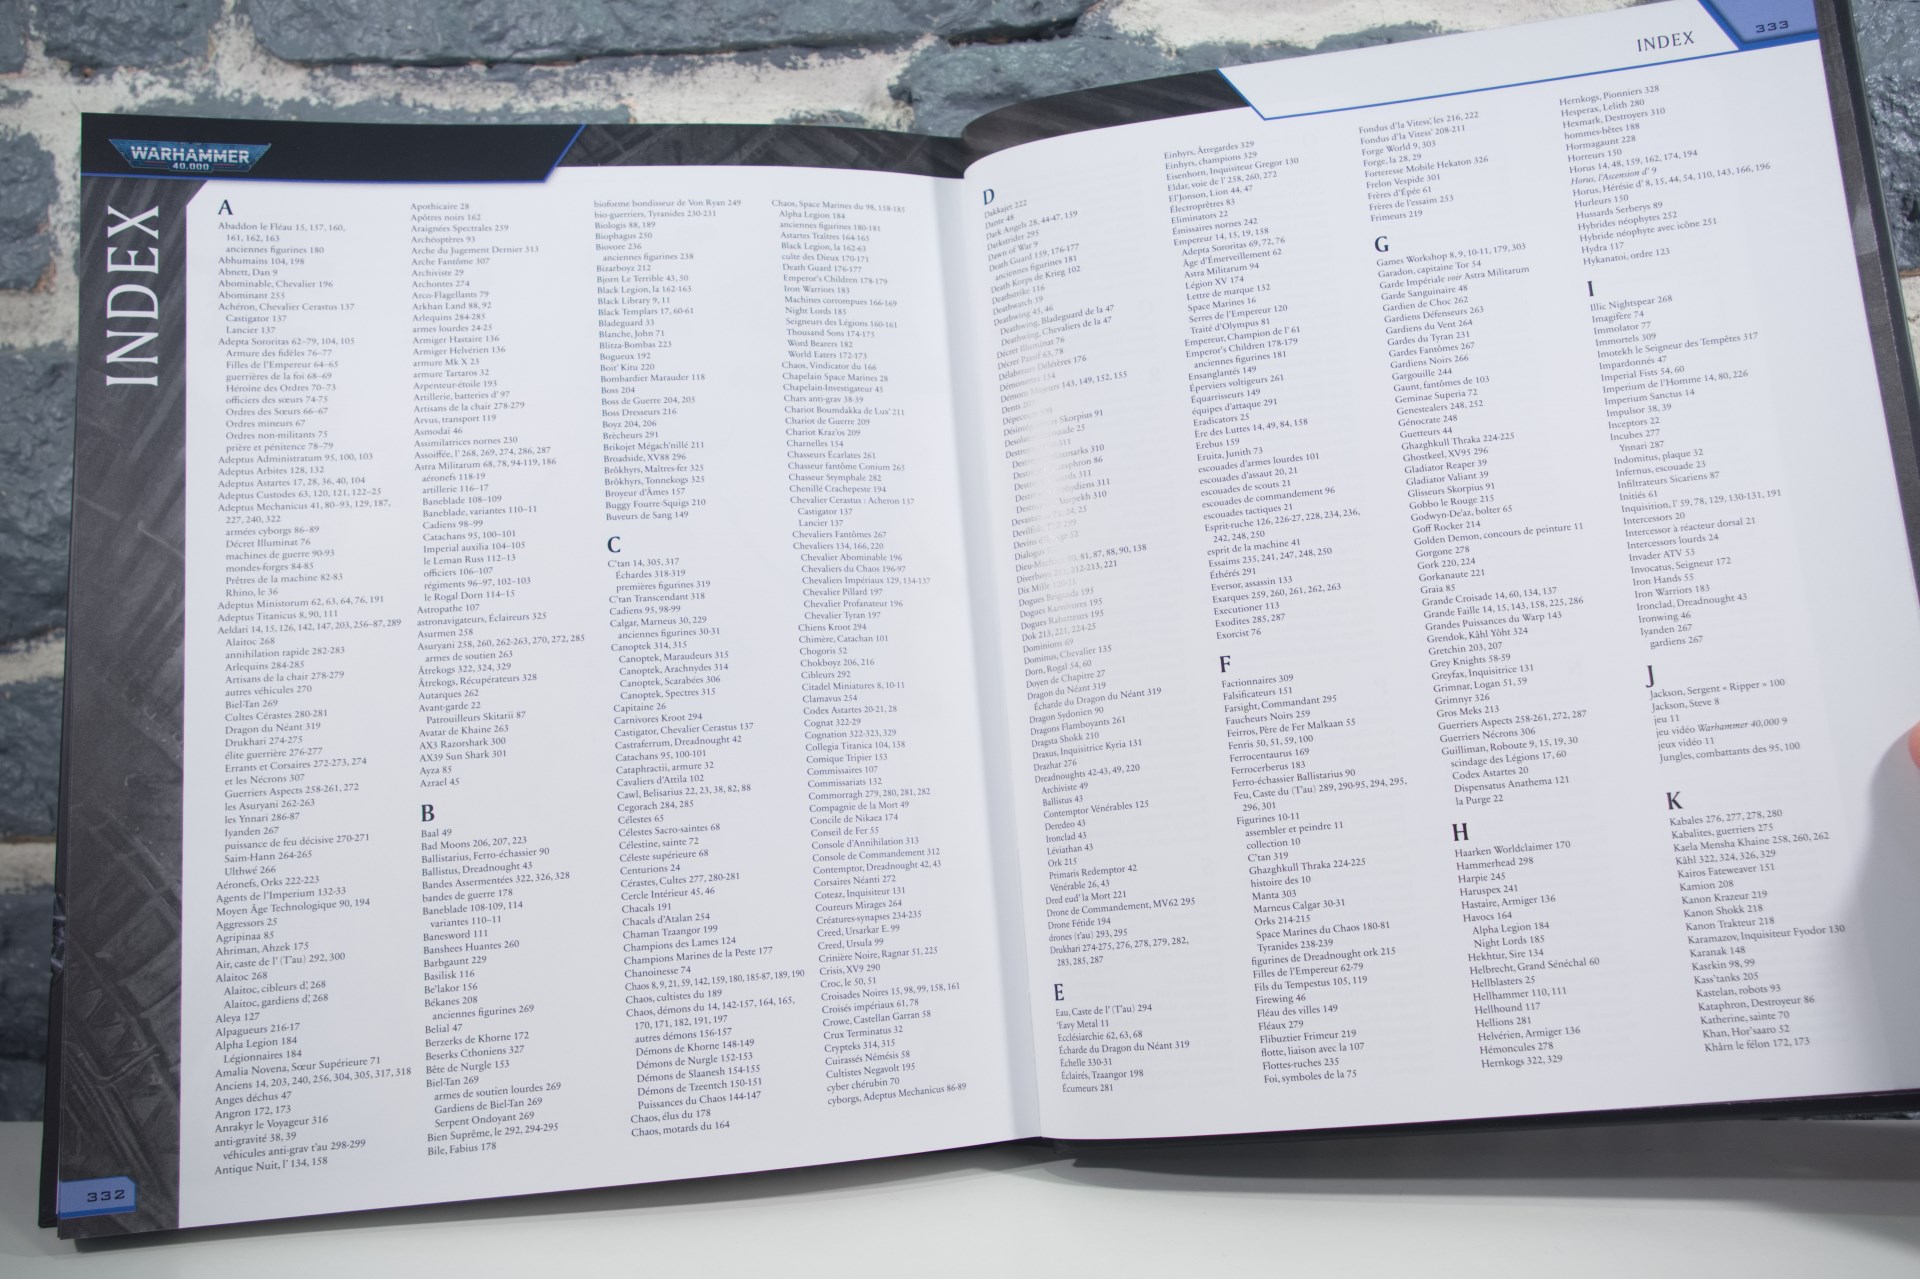 WARHAMMER
40,000
INDEX
A
Abaddon le Fléau 15, 157, 160,
161, 162, 163
anciennes figurines 180
Abhumains 104, 198
Abnett, Dan 9
Abominable, Chevalier 196
Abominant 253
Achéron, Chevalier Cerastus 137
Castigator 137
Lancier 137
Adepta Sororitas 62–79, 104, 105
Armure des fidèles 76–77
Filles de l'Empereur 64–65
guerrières de la foi 68–69
Héroïne des Ordres 70–73
officiers des sœurs 74-75
Ordres des Sœurs 66–67
Ordres mineurs 67
Ordres non-militants 75
prière et pénitence 78–79
Adeptus Administratum 95, 100, 103
Adeptus Arbites 128, 132
Adeptus Astartes 17, 28, 36, 40, 104
Adeptus Custodes 63, 120, 121, 122–25
Adeptus Mechanicus 41, 80–93, 129, 187,
227, 240, 322
armées cyborgs 86–89
Décret Illuminat 76
machines de guerre 90-93
mondes-forges 84-85
Prêtres de la machine 82-83
Rhino, le 36
Adeptus Ministorum 62, 63, 64, 76, 191
Adeptus Titanicus 8, 90, 111
Aeldari 14, 15, 126, 142, 147, 203, 256–87, 289
Alaitoc 268
annihilation rapide 282-283
Arlequins 284-285
Artisans de la chair 278-279
autres véhicules 270
Biel-Tan 269
Cultes Cérastes 280-281
Dragon du Néant 319
Drukhari 274-275
élite guerrière 276-277
Errants et Corsaires 272-273, 274
et les Nécrons 307
Guerriers Aspects 258-261, 272
les Asuryani 262-263
les Ynnari 286-87
Iyanden 267
puissance de feu décisive 270-271
Saim-Hann 264-265
Ulthwé 266
Aéronefs, Orks 222-223
Agents de l'Imperium 132-33
Moyen Âge Technologique 90, 194
Aggressors 25
Agripinaa 85
Ahriman, Ahzek 175
Air, caste de l' (T'au) 292, 300
Alaitoc 268
Alaitoc, cibleurs d', 268
Alaitoc, gardiens d', 268
Aleya 127
Alpagueurs 216-17
Alpha Legion 184
Légionnaires 184
Amalia Novena, Sœur Supérieure 71
Anciens 14, 203, 240, 256, 304, 305, 317, 318
Anges déchus 47
Angron 172, 173
Anrakyr le Voyageur 316
anti-gravité 38, 39
véhicules anti-grav t'au 298-299
Antique Nuit, l' 134, 158
Apothicaire 28
Apôtres noirs 162
Araignées Spectrales 259
Archéoptères 93
Arche du Jugement Dernier 313
Arche Fantôme 307
Archiviste 29
Archontes 274
Arco-Flagellants 79
Arkhan Land 88, 92
Arlequins 284-285
armes lourdes 24-25
Armiger Hastaire 136
Armiger Helvérien 136
armure Mk X 23
armure Tartaros 32
Arpenteur-étoile 193
Artillerie, batteries d' 97
Artisans de la chair 278-279
Arvus, transport 119
Asmodai 46
Assimilatrices nornes 230
Assoiffée, l' 268, 269, 274, 286, 287
Astra Militarum 68, 78, 94-119, 186
aéronefs 118-19
artillerie 116–17
Baneblade 108–109
Baneblade, variantes 110–11
Cadiens 98–99
Catachans 95, 100–101
Imperial auxilia 104–105
le Leman Russ 112–13
officiers 106–107
régiments 96–97, 102–103
le Rogal Dorn 114–15
Astropathe 107
astronavigateurs, Éclaireurs 325
Asurmen 258
Asuryani 258, 260, 262-263, 270, 272, 285
armes de soutien 263
Âtrekogs 322, 324, 329
Âtrekogs, Récupérateurs 328
Autarques 262
Avant-garde 22
Patrouilleurs Skitarii 87
Avatar de Khaine 263
AX3 Razorshark 300
AX39 Sun Shark 301
Ayza 85
Azrael 45
B
Baal 49
Bad Moons 206, 207, 223
Ballistarius, Ferro-échassier 90
Ballistus, Dreadnought 43
Bandes Assermentées 322, 326, 328
bandes de guerre 178
Baneblade 108-109, 114
variantes 110–11
Banesword 111
Banshees Huantes 260
Barbgaunt 229
Basilisk 116
Be'lakor 156
Békanes 208
anciennes figurines 269
Belial 47
Berzerks de Khorne 172
Beserks Cthoniens 327
Bête de Nurgle 153
Biel-Tan 269
armes de soutien lourdes 269
Gardiens de Biel-Tan 269
Serpent Ondoyant 269
Bien Suprême, le 292, 294-295
Bile, Fabius 178
bioforme bondisseur de Von Ryan 249
bio-guerriers, Tyranides 230-231
Biologis 88, 189
Biophagus 250
Biovore 236
anciennes figurines 238
Bizarboyz 212
Bjorn Le Terrible 43, 50
Black Legion, la 162-163
Black Library 9, 11
Black Templars 17, 60-61
Bladeguard 33
Blanche, John 71
Blitza-Bombas 223
Bogueux 192
Boit' Kitu 220
Bombardier Marauder 118
Boss 204
Boss de Guerre 204, 205
Boss Dresseurs 216
Boyz 204, 206
Brècheurs 291
Brikojet Mégach'nillé 211
Broadside, XV88 296
Brôkhyrs, Maîtres-fer 325
Brôkhyrs, Tonnekogs 325
Broyeur d'Âmes 157
Buggy Fourre-Squigs 210
Buveurs de Sang 149
C
C'tan 14, 305, 317
Échardes 318-319
premières figurines 319
C'tan Transcendant 318
Cadiens 95, 98-99
Calgar, Marneus 30, 229
anciennes figurines 30-31
Canoptek 314, 315
Canoptek, Maraudeurs 315
Canoptek, Arachnydes 314
Canoptek, Scarabées 306
Canoptek, Spectres 315
Capitaine 26
Carnivores Kroot 294
Castigator, Chevalier Cerastus 137
Castraferrum, Dreadnought 42
Catachans 95, 100-101
Cataphractii, armure 32
Cavaliers d'Attila 102
Cawl, Belisarius 22, 23, 38, 82, 88
Cegorach 284, 285
Célestes 65
Célestes Sacro-saintes 68
Célestine, sainte 72
Céleste supérieure 68
Centurions 24
Cérastes, Cultes 277, 280-281
Cercle Intérieur 45, 46
Chacals 191
Chacals d'Atalan 254
Chaman Tzaangor 199
Champions des Lames 124
Champions Marines de la Peste 177
Chanoinesse 74
Chaos 8, 9, 21, 59, 142, 159, 180, 185-87, 189, 190
Chaos, cultistes du 189
Chaos, démons du 14, 142-157, 164, 165,
170, 171, 182, 191, 197
autres démons 156-157
Démons de Khorne 148-149
Démons de Nurgle 152-153
Démons de Slaanesh 154-155
Démons de Tzeentch 150-151
Puissances du Chaos 144-147
Chaos, élus du 178
Chaos, motards du 164
Chaos, Space Marines du 98, 158-185
Alpha Legion 184
anciennes figurines 180-181
Astartes Traîtres 164-165
Black Legion, la 162-63
culte des Dieux 170-171
Death Guard 176-177
Emperor's Children 178-179
Iron Warriors 183
Machines corrompues 166-169
Night Lords 185
Seigneurs des Légions 160-161
Thousand Sons 174-175
Word Bearers 182
World Eaters 172-173
Chaos, Vindicator du 166
Chapelain Space Marines 28
Chapelain-Investigateur 45
Chars anti-grav 38-39
Chariot Boumdakka de Lus' 211
Chariot de Guerre 209
Chariot Kraz'os 209
Charnelles 154
Chasseurs Écarlates 261
Chasseur fantôme Conium 265
Chasseur Stymphale 282
Chenillé Crachepeste 194
Chevalier Cerastus : Acheron 137
Castigator 137
Lancier 137
Chevaliers Fantômes 267
Chevaliers 134, 166, 220
Chevalier Abominable 196
Chevaliers du Chaos 196-97
Chevaliers Impériaux 129, 134-137
Chevalier Pillard 197
Chevalier Profanateur 196
Chevalier Tyran 197
Chiens Kroot 294
Chimère, Catachan 101
Chogoris 52
Chokboyz 206, 216
Cibleurs 292
Citadel Miniatures 8, 10-11
Clamavus 254
Codex Astartes 20-21, 28
Cognat 322-29
Cognation 322-323, 329
Collegia Titanica 104, 138
Comique Tripier 153
Commissaires 107
Commissariats 132
Commorragh 279, 280, 281, 282
Compagnie de la Mort 49
Concile de Nikaea 174
Conseil de Fer 55
Console d'Annihilation 313
Console de Commandement 312
Contemptor, Dreadnought 42, 43
Corsaires Néanti 272
Coteaz, Inquisiteur 131
Coureurs Mirages 264
Créatures-synapses 234-235
Creed, Ursarkar E. 99
Creed, Ursula 99
Crinière Noire, Ragnar 51, 225
Crisis, XV9 290
Croc, le 50, 51
Croisades Noires 15, 98, 99, 158, 161
Croisés impériaux 61, 78
Crowe, Castellan Garran 58
Crux Terminatus 32
Crypteks 314, 315
Cuirassés Némésis 58
Cultistes Negavolt 195
cyber chérubin 70
cyborgs, Adeptus Mechanicus 86-89
332
INDEX
333
D
Dakkajet 222
Dante 48
Dark Angels 28, 44-47, 159
Darkstrider 295
Dawn of War 9
Death Guard 159, 176-177
anciennes figurines 181
Death Korps de Krieg 102
Deathstrike 116
Deathwatch 59
Deathwing 45, 46
Deathwing, Bladeguard de la 47
Deathwing, Chevaliers de la 47
Décret Illuminat 76
Décret Passif 63, 78
Délabreurs Délétères 176
143, 149, 152, 155
Skorpius 91
Dogues
Dogues Karnivores 195
Dogues Rabatteurs 195
Dok 213, 221, 224-25
Dominions 69
Dominus, Chevalier 135
Dorn, Rogal 54, 60
Doyen de Chapitre 27
Dragon du Néant 319
Écharde du Dragon du Néant 319
Dragon Sydonien 90
Dragons Flamboyants 261
Dragsta Shokk 210
Draxus, Inquisitrice Kyria 131
Drazhar 276
Dreadnoughts 42-43, 49, 220
Archiviste 49
Ballistus 43
Contemptor Vénérables 125
Deredeo 43
Ironclad 43
Léviathan 43
Ork 215
Primaris Redemptor 42
Vénérable 26, 43
Dred eud' la Mort 221
Drone de Commandement, MV62 295
Drone Fétide 194
drones (t'au) 293, 295
Drukhari 274-275, 276, 278, 279, 282,
283, 285, 287
E
Eau, Caste de l' (T'au) 294
'Eavy Metal 11
Ecclésiarchie 62, 63, 68
Écharde du Dragon du Néant 319
Échelle 330-31
Éclairés, Tzaangor 198
Écumeurs 281
Einhyrs, Âtregardes 329
Einhyrs, champions 329
Eisenhorn, Inquisiteur Gregor 130
Eldar, voie de l' 258, 260, 272
El'Jonson, Lion 44, 47
Électroprêtres 83
Eliminators 22
Émissaires nornes 242
Empereur 14, 15, 19, 158
Adepta Sororitas 69, 72, 76
Âge d'Émerveillement 62
Astra Militarum 94
Légion XV 174
Lettre de marque 132
Space Marines 16
Serres de l'Empereur 120
Traité d'Olympus 81
Empereur, Champion de l' 61
Emperor's Children 178-179
anciennes figurines 181
Ensanglantés 149
Éperviers voltigeurs 261
Équarrisseurs 149
équipes d'attaque 291
Eradicators 25
Ere des Luttes 14, 49, 84, 158
Erebus 159
Eruita, Junith 73
escouades d'armes lourdes 101
escouades d'assaut 20, 21
escouades de scouts 21
escouades de commandement 96
escouades tactiques 21
Esprit-ruche 126, 226-27, 228, 234, 236,
242, 248, 250
esprit de la machine 41
Essaims 235, 241, 247, 248, 250
Éthérés 291
Eversor, assassin 133
Exarques 259, 260, 261, 262, 263
Executioner 113
Exodites 285, 287
Exorcist 76
F
Factionnaires 309
Falsificateurs 151
Farsight, Commandant 295
Faucheurs Noirs 259
Feirros, Père de Fer Malkaan 55
Fenris 50, 51, 59, 100
Ferrocentaurus 169
Ferrocerberus 183
Ferro-échassier Ballistarius 90
Feu, Caste du (T'au) 289, 290-95, 294, 295,
296, 301
Figurines 10-11
assembler et peindre 11
collection 10
C'tan 319
Ghazghkull Thraka 224-225
histoire des 10
Manta 303
Marneus Calgar 30-31
Orks 214-215
Space Marines du Chaos 180-81
Tyranides 238-239
figurines de Dreadnought ork 215
Filles de l'Empereur 62-79
Fils du Tempestus 105, 119
Firewing 46
Fléau des villes 149
Fléaux 279
Flibuztier Frimeur 219
flotte, liaison avec la 107
Flottes-ruches 235
Foi, symboles de la 75
Fondus d'la Vitess', les 216, 222
Fondus d'la Vitess' 208-211
Forge World 9, 303
Forge, la 28, 29
Forteresse Mobile Hekaton 326
Frelon Vespide 301
Frères d'Épée 61
Frères de l'essaim 253
Frimeurs 219
G
Games Workshop 8, 9, 10-11, 179, 303
Garadon, capitaine Tor 54
Garde Impériale voir Astra Militarum
Garde Sanguinaire 48
Gardien de Choc 262
Gardiens Défenseurs 263
Gardiens du Vent 264
Gardes du Tyran 231
Gardes Fantômes 267
Gardiens Noirs 266
Gargouille 244
Gaunt, fantômes de 103
Geminae Superia 72
Genestealers 248, 252
Génocrate 248
Guetteurs 44
Ghazghkull Thraka 224-225
Ghostkeel, XV95 296
Gladiator Reaper 39
Gladiator Valiant 39
Glisseurs Skorpius 91
Gobbo le Rouge 215
Godwyn-De'az, bolter 65
Goff Rocker 214
Golden Demon, concours de peinture 11
Gorgone 278
Gork 220, 224
Gorkanaute 221
Graia 85
Grande Croisade 14, 60, 134, 137
Grande Faille 14, 15, 143, 158, 225, 286
Grandes Puissances du Warp 143
Grendok, Kâhl Yôht 324
Gretchin 203, 207
Grey Knights 58-59
Greyfax, Inquisitrice 131
Grimnar, Logan 51, 59
Grimnyr 326
Gros Meks 213
Guerriers Aspects 258-261, 272, 287
Guerriers Nécrons 306
Guilliman, Roboute 9, 15, 19, 30
scindage des Légions 17, 60
Codex Astartes 20
Dispensatus Anathema 121
la Purge 22
H
Haarken Worldclaimer 170
Hammerhead 298
Harpie 245
Haruspex 241
Hastaire, Armiger 136
Havocs 164
Alpha Legion 184
Night Lords 185
Hekhtur, Sire 134
Helbrecht, Grand Sénéchal 60
Hellblasters 25
Hellhammer 110, 111
Hellhound 117
Hellions 281
Helvérien, Armiger 136
Hémoncules 278
Hernkogs 322, 329
Hernkogs, Pionniers 328
Hesperax, Lelith 280
Hexmark, Destroyers 310
hommes-bêtes 188
Hormagaunt 228
Horreurs 150
Horus 14, 48, 159, 162, 174, 194
Horus, l'Ascension d' 9
Horus, Hérésie d' 8, 15, 44, 54, 110, 143, 166, 196
Hurleurs 150
Hussards Serberys 89
Hybrides néophytes 252
Hybride néophyte avec icône 251
Hydra 117
Hykanatoi, ordre 123
I
Illic Nightspear 268
Imagifère 74
Immolator 77
Immortels 309
Imotekh le Seigneur des Tempêtes 317
Impardonnés 47
Imperial Fists 54, 60
Imperium de l'Homme 14, 80, 226
Imperium Sanctus 14
Impulsor 38, 39
Inceptors 22
Incubes 277
Ynnari 287
Indomitus, plaque 32
Infernus, escouade 23
Infiltrateurs Sicariens 87
Initiés 61
Inquisition, l' 59, 78, 129, 130-131, 191
Intercessors 20
Intercessor à réacteur dorsal 21
Intercessors lourds 24
Invader ATV 53
Invocatus, Seigneur 172
Iron Hands 55
Iron Warriors 183
Ironclad, Dreadnought 43
Ironwing 46
Iyanden 267
gardiens 267
J
Jackson, Sergent « Ripper » 100
Jackson, Steve 8
jeu 11
jeu vidéo Warhammer 40,000 9
jeux vidéo 11
Jungles, combattants des 95, 100
K
Kabales 276, 277, 278, 280
Kabalites, guerriers 275
Kaela Mensha Khaine 258, 260, 262
Kâhl 322, 324, 326, 329
Kairos Fateweaver 151
Kamion 208
Kanon Krazeur 219
Kanon Shokk 218
Kanon Trakteur 218
Karamazov, Inquisiteur Fyodor 130
Karanak 148
Kasrkin 98, 99
Kass'tanks 205
Kastelan, robots 93
Kataphron, Destroyeur 86
Katherine, sainte 70
Khan, Hor'saaro 52
Khârn le félon 172, 173